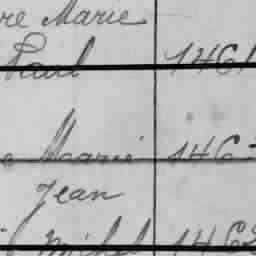 re Marie
Paul 1461
Marie 146
Jean
Michel 1462